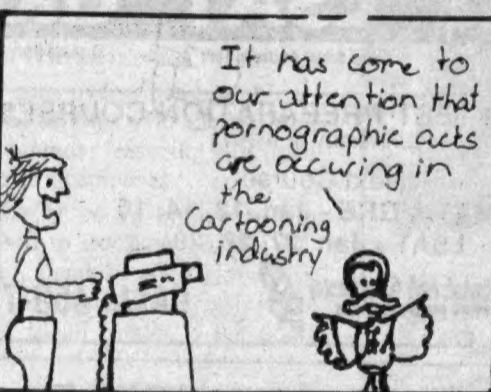 It has come to
our attention that
pornographic acts
are occuring in
the
Cartooning
industry